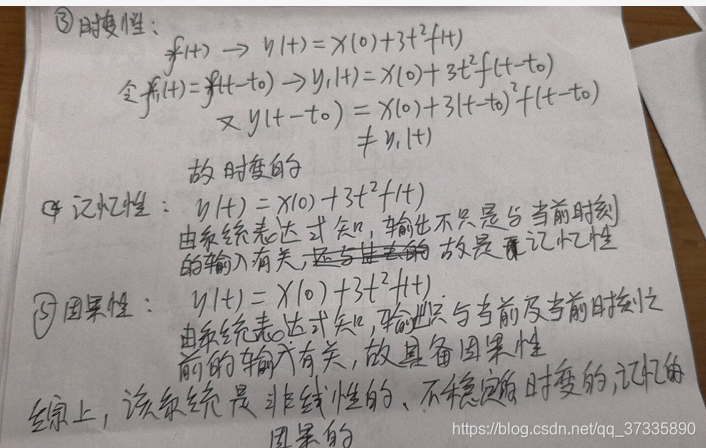 ③时变性：
f(t) → y(t) = x(0) + 3t²f(t)
令f₁(t) = f(t-t₀) → y₁(t) = x(0) + 3t²f(t-t₀)
又 y(t-t₀) = x(0) + 3(t-t₀)²f(t-t₀)
≠ y₁(t)
故时变的
④记忆性： y(t) = x(0) + 3t²f(t)
由系统表达式知，输出不只是与当前时刻
的输入有关，故是记忆性
⑤因果性： y(t) = x(0) + 3t²f(t)
由系统表达式知，输出只与当前及当前时刻之
前的输入有关，故具备因果性
综上，该系统是非线性的、不稳定的、时变的，记忆的
因果的
https://blog.csdn.net/qq_37335890